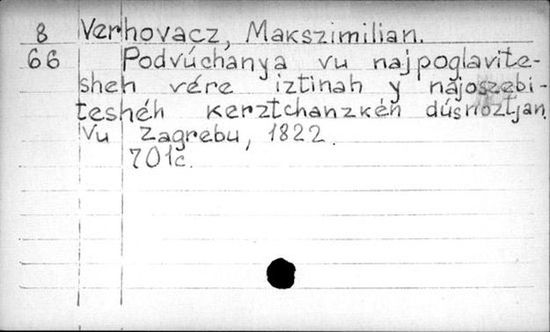 8 Verhovacz, Makszimilian.
66 Podvúchanya vu najpoglavite-
sheh vére iztinah y najoszebi-
teshéh kerztchanzkéh dúsnoztjan.
Vu Zagrebu, 1822.
701c.